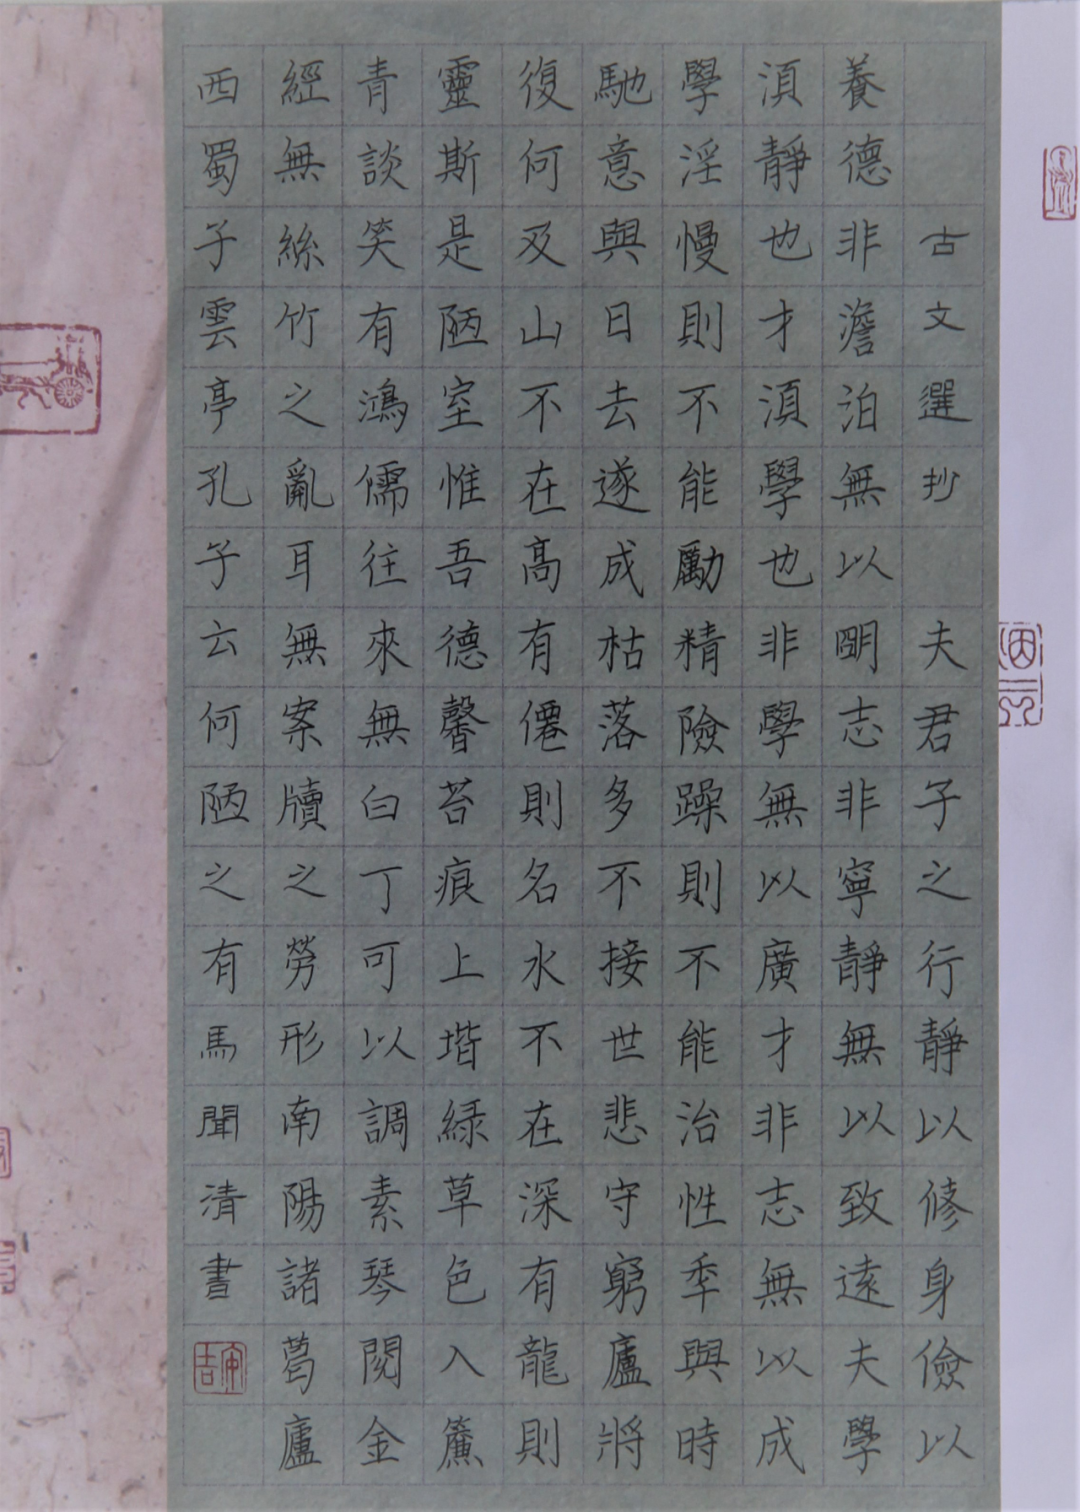 古文選抄 夫君子之行靜以修身儉以
養德非澹泊無以明志非寧靜無以致遠夫學
須靜也才須學也非學無以廣才非志無以成
學淫慢則不能勵精險躁則不能治性年與時
馳意與日去遂成枯落多不接世悲守窮廬將
復何及山不在高有僊則名水不在深有龍則
靈斯是陋室惟吾德馨苔痕上堦緑草色入簾
青談笑有鴻儒往來無白丁可以調素琴閱金
經無絲竹之亂耳無案牘之勞形南陽諸葛廬
西蜀子雲亭孔子云何陋之有馬聞清書